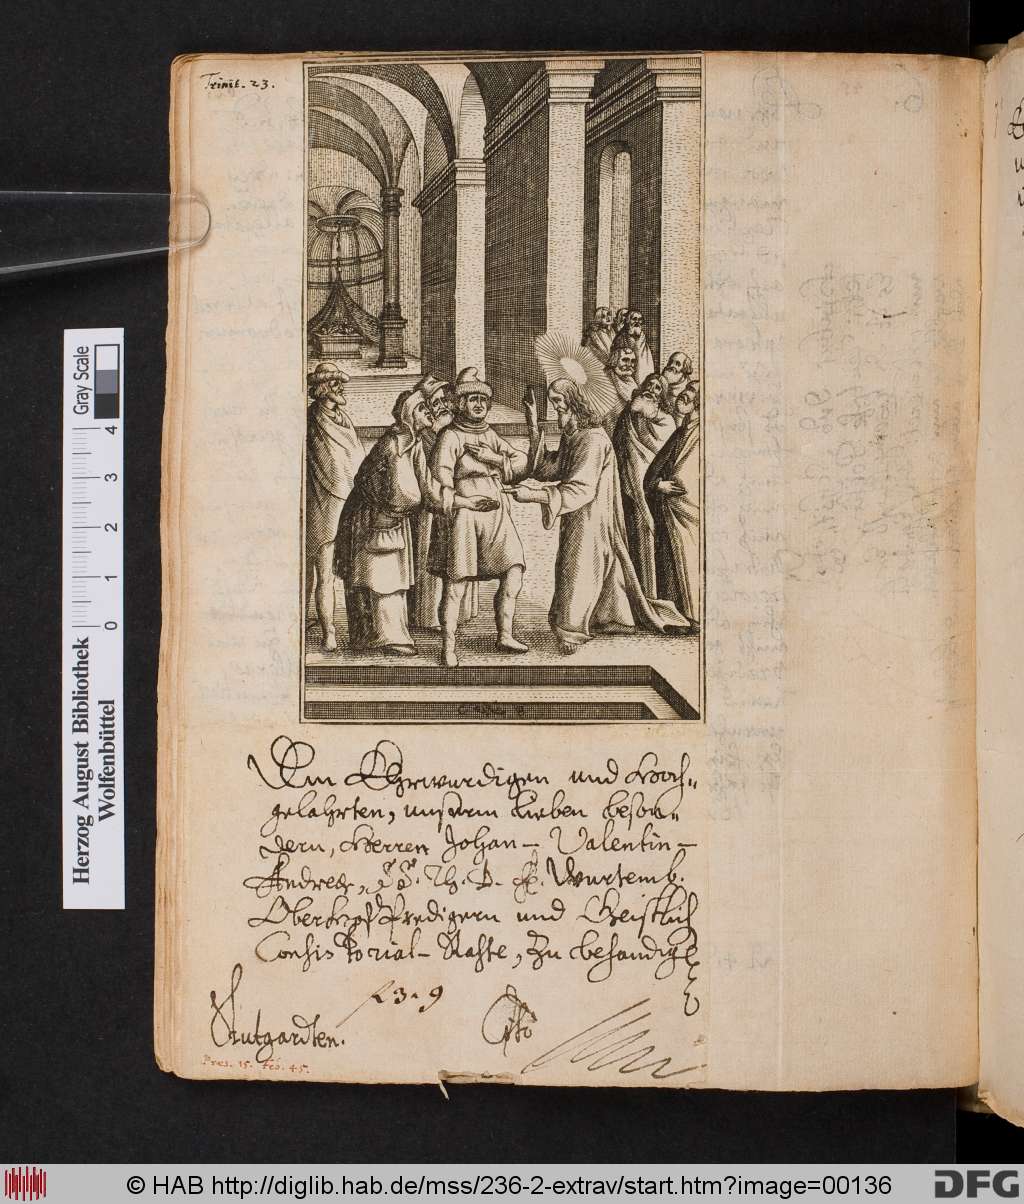 Trinit. 23.
Dem Ehrwürdigen und Hoch-
gelahrten, unserm lieben beson-
dern, Herren Johan- Valentin-
Andreæ, SS. Th. D. Wurtemb.
Oberhof Predigern und Geistlich
Consistorial- Rahte, zu behändigē
Stutgardten.
Cito
Pres. 15. Feb. 45.
Herzog August Bibliothek
Wolfenbüttel
0 1 2 3 4
Gray Scale
© HAB http://diglib.hab.de/mss/236-2-extrav/start.htm?image=00136
DFG